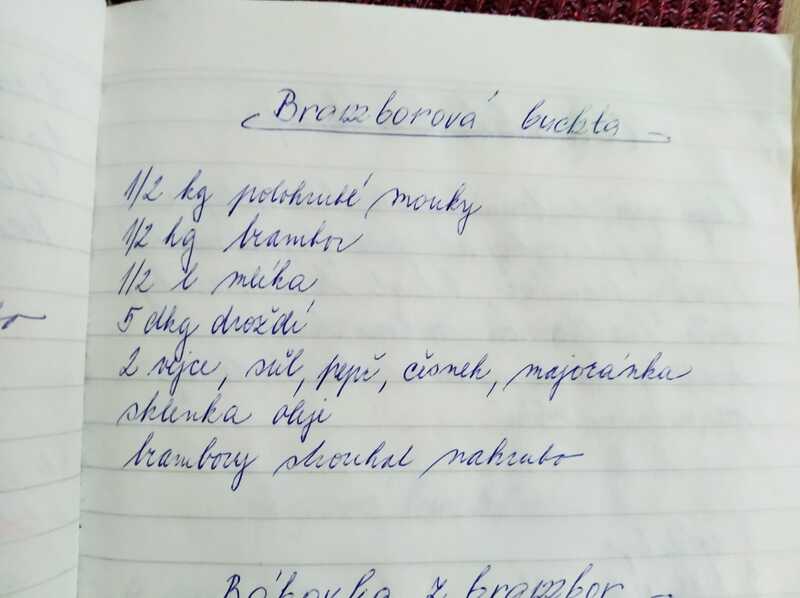 Bramborová buchta
1/2 kg polohrubé mouky
1/2 kg brambor
1/2 l mléka
5 dkg droždí
2 vejce, sůl, pepř, česnek, majoránka
sklenka oleje
brambory strouhat nahrubo
Bábovka z brambor